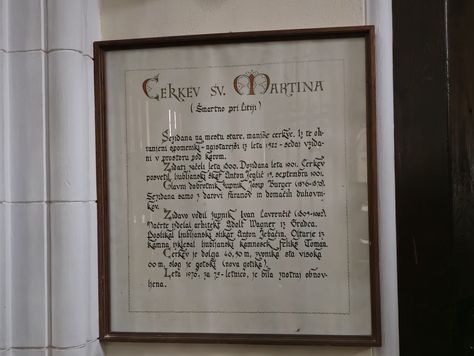 Cerkev sv. Martina
(Šmartno pri Litiji)
Sezidana na mestu stare, manjše cerkve. Iz te oh-
ranjeni spomeniki - najstarejši iz leta - sedaj vzida-
ni v prostoru pod korom.
Zidati začeli leta 1900. Dozidana leta 1901. Cerkev
posvetil ljubljanski škof Anton Jeglič septembra 1901.
Glavni dobrotnik župnik Josip Burger
Sezidana samo z darovi faranov in domačih duhovni-
kov.
Zidavo vodil župnik Ivan Lavrenčič
Načrte izdelal arhitekt Adolf Wagner iz Gradca.
Poslikal ljubljanski slikar Anton Jebačin. Oltarje iz
kamna izklesal ljubljanski kamnosek Feliks Toman.
Cerkev je dolga 46,50 m, zvonika sta visoka
m, slog je gotski (nova gotika).
Leta 1976, za 75-letnico, je bila znotraj obnov-
ljena.